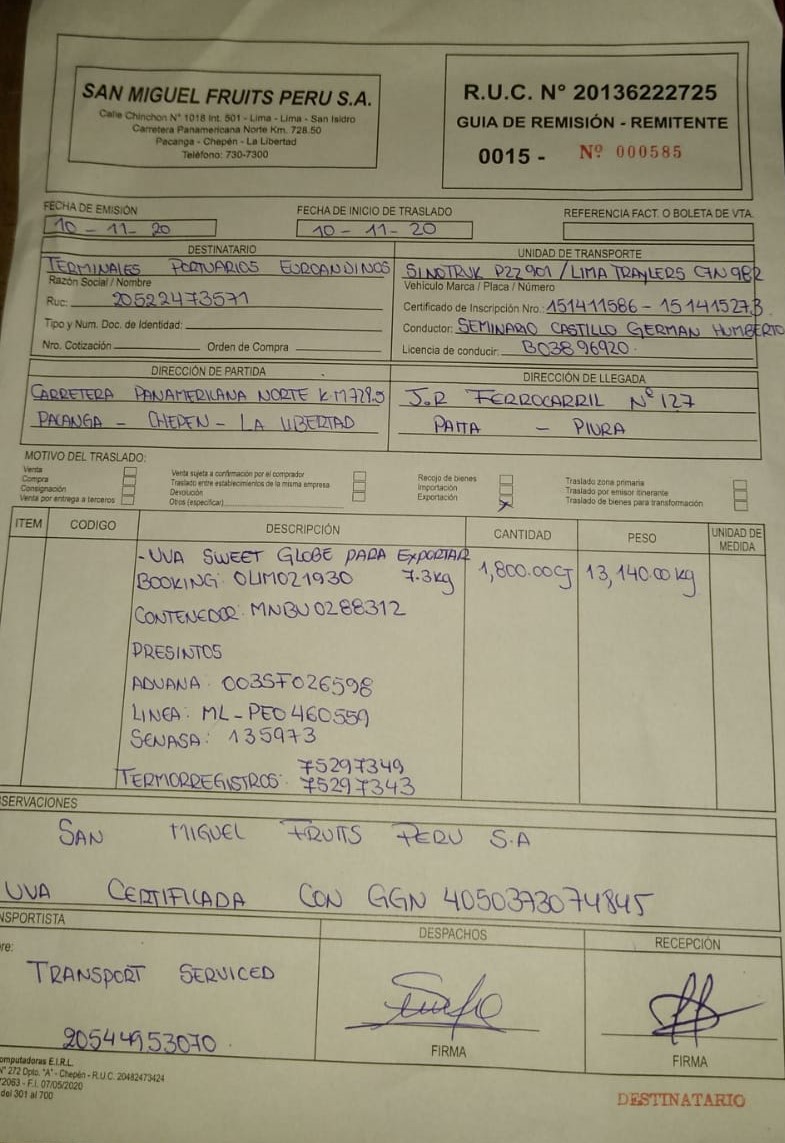 SAN MIGUEL FRUITS PERU S.A.
Calle Chinchon N° 1018 Int. 501 - Lima - Lima - San Isidro
Carretera Panamericana Norte Km. 728.50
Pacanga - Chepén - La Libertad
Teléfono: 730-7300
R.U.C. N° 20136222725
GUIA DE REMISIÓN - REMITENTE
0015 - Nº 000585
FECHA DE EMISIÓN
10 - 11 - 20
FECHA DE INICIO DE TRASLADO
10 - 11 - 20
REFERENCIA FACT. O BOLETA DE VTA.
DESTINATARIO
TERMINALES PORTUARIOS EUROANDINOS
Razón Social / Nombre
Ruc: 20522473571
Tipo y Num. Doc. de Identidad:
Nro. Cotización Orden de Compra
UNIDAD DE TRANSPORTE
SINOTRUK P2Z 901 / LIMA TRAYLERS C7N 982
Vehículo Marca / Placa / Número
Certificado de Inscripción Nro.: 151411586 - 151415273
Conductor: SEMINARIO CASTILLO GERMAN HUMBERTO
Licencia de conducir: B03896920
DIRECCIÓN DE PARTIDA
CARRETERA PANAMERICANA NORTE K.M 728.5
PACANGA - CHEPEN - LA LIBERTAD
DIRECCIÓN DE LLEGADA
J.R FERROCARRIL Nº 127
PAITA - PIURA
MOTIVO DEL TRASLADO:
Venta
Compra
Consignación
Venta por entrega a terceros
Venta sujeta a confirmación por el comprador
Traslado entre establecimientos de la misma empresa
Devolución
Otros (especificar)
Recojo de bienes
Importación
Exportación X
Traslado zona primaria
Traslado por emisor itinerante
Traslado de bienes para transformación
ITEM CODIGO DESCRIPCIÓN CANTIDAD PESO UNIDAD DE MEDIDA
- UVA SWEET GLOBE PARA EXPORTAR
BOOKING: OLIM021930 7.3kg 1,800.00CJ 13,140.00 kg
CONTENEDOR: MNBU 0288312
PRESINTOS
ADUANA: 003SF026598
LINEA: ML-PE0460559
SENASA: 135973
75297349
TERMORREGISTROS: 75297343
SERVACIONES
SAN MIGUEL FRUITS PERU S.A
UVA CERTIFICADA CON GGN 4050373074845
NSPORTISTA
re:
TRANSPORT SERVICED
20544953070
DESPACHOS
FIRMA
RECEPCIÓN
FIRMA
omputadoras E.I.R.L.
N° 272 Dpto. "A" - Chepén - R.U.C. 20482473424
72063 - F.I. 07/05/2020
del 301 al 700
DESTINATARIO